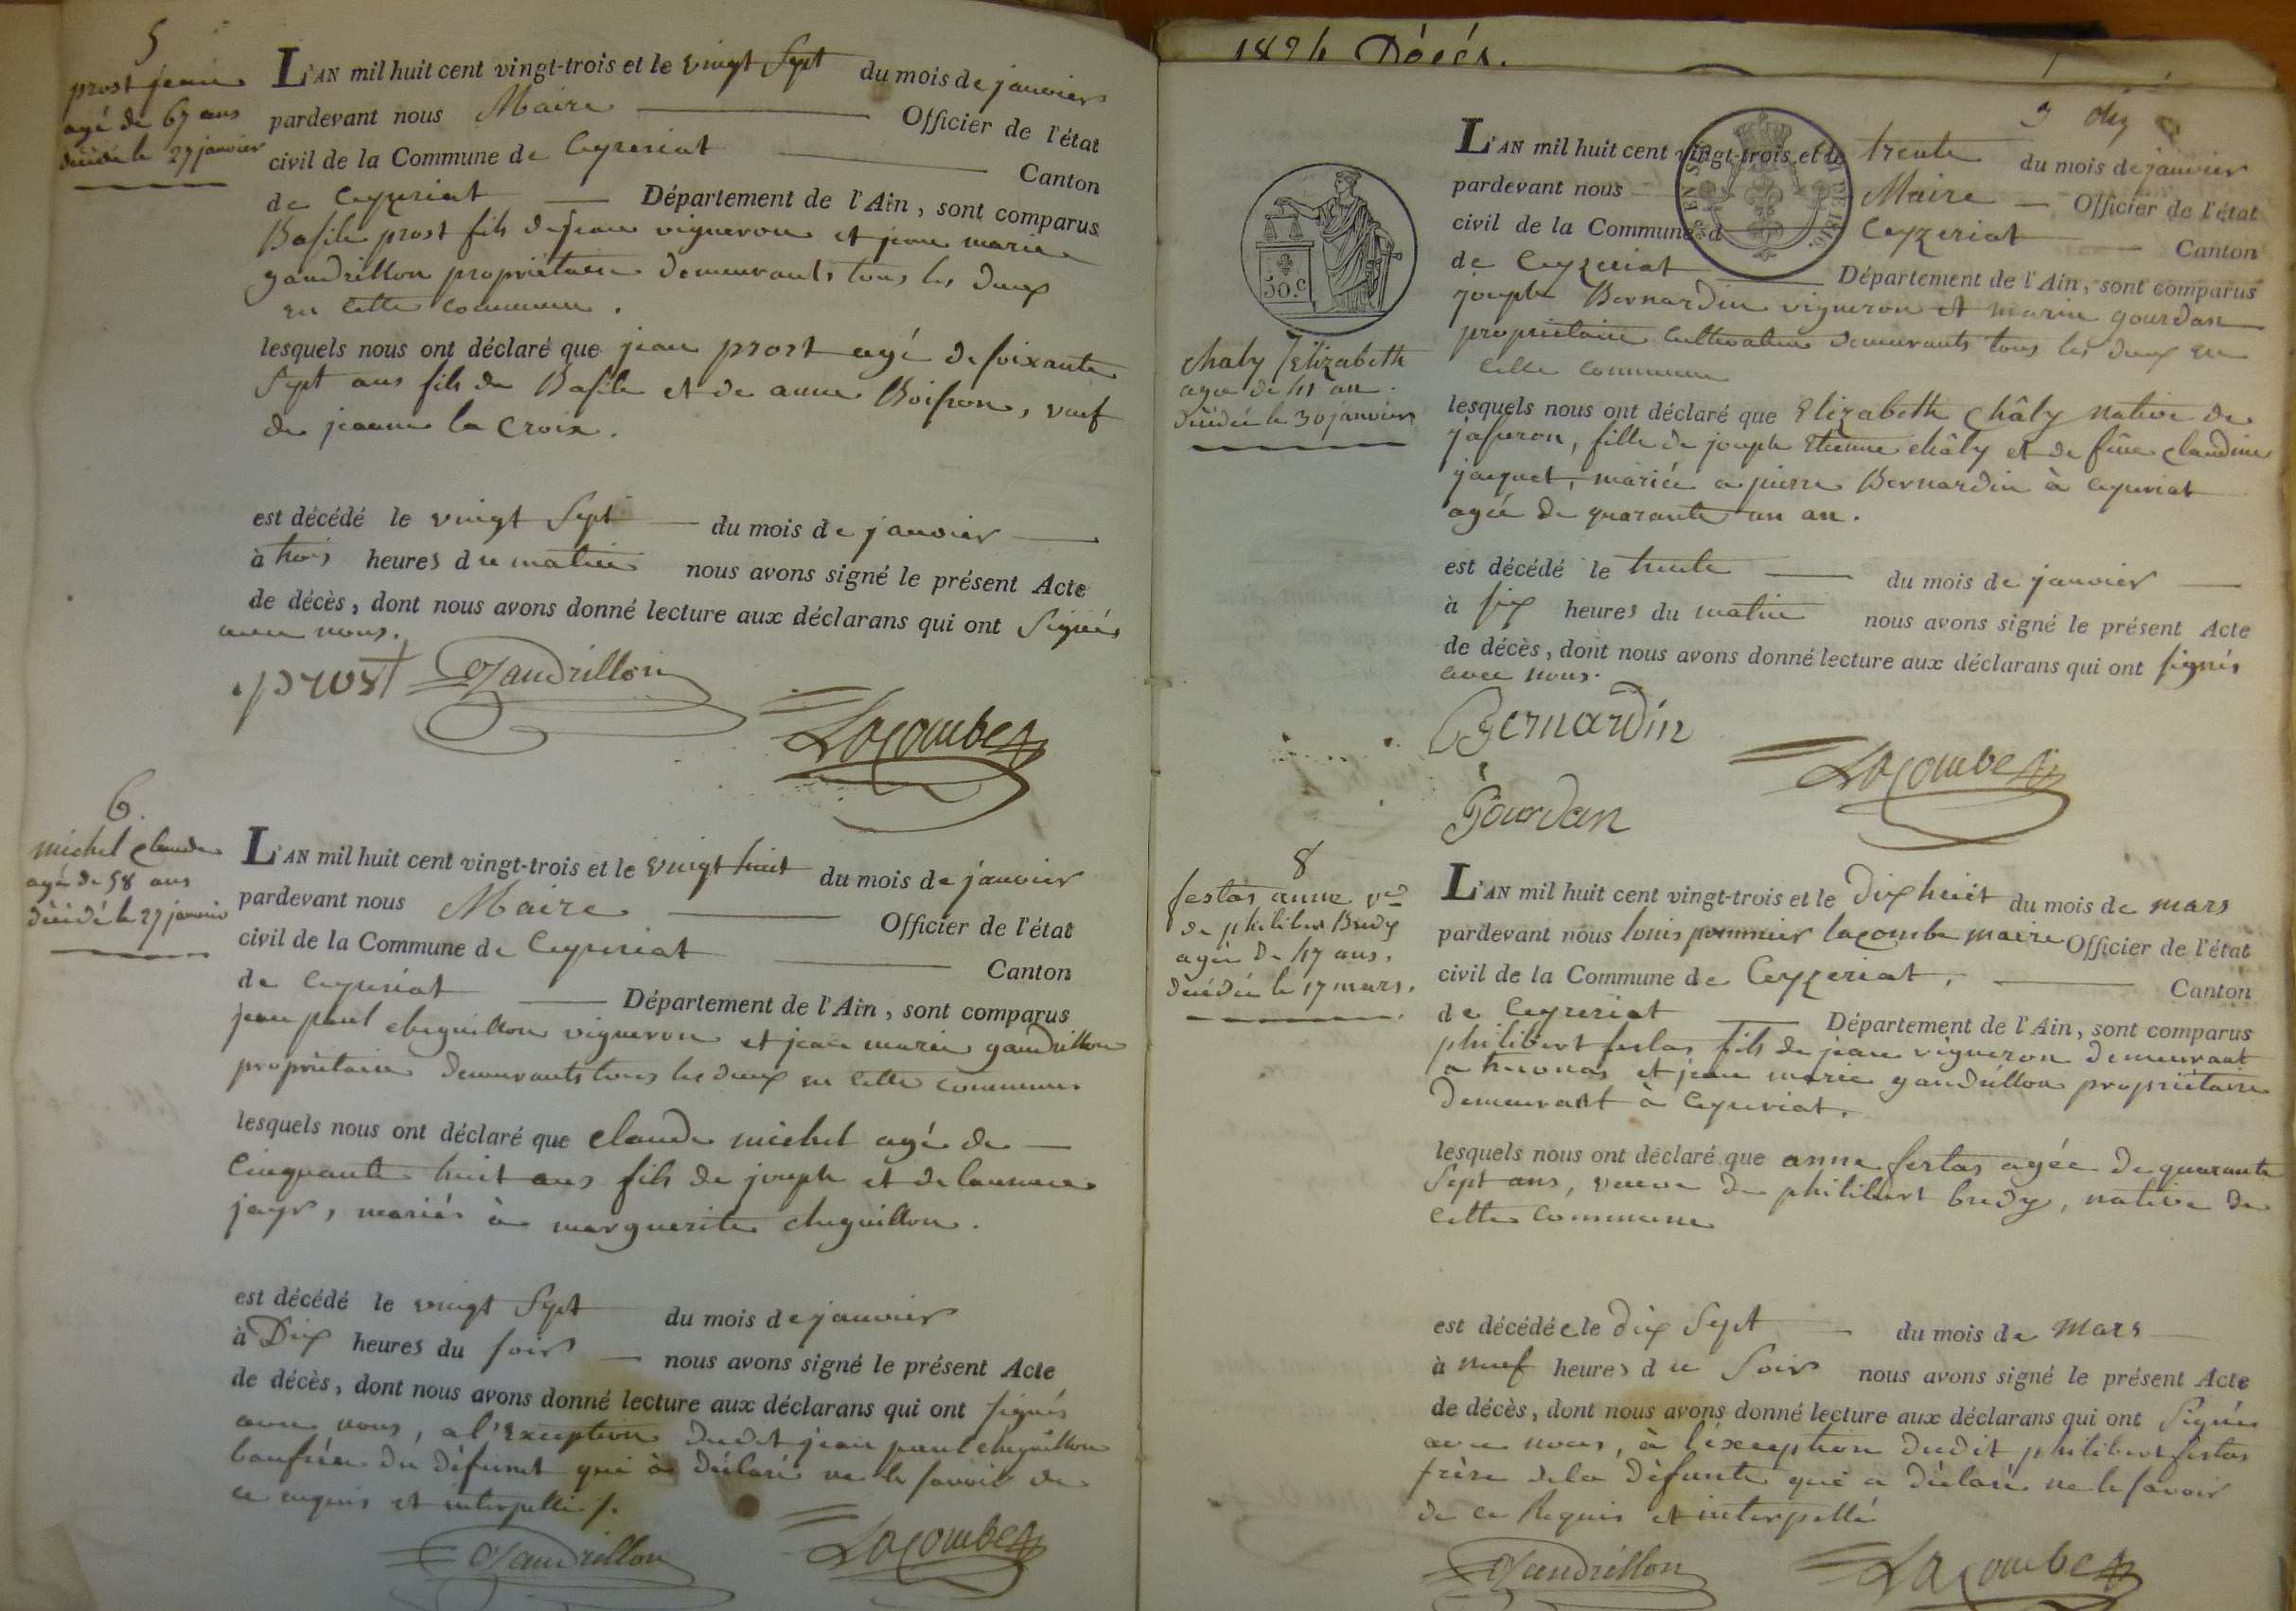 5
prost jean
agé de 67 ans
décédé le 27 janvier
L'AN mil huit cent vingt-trois et le vingt Sept du mois de janvier
pardevant nous Maire Officier de l'état
civil de la Commune de Ceyzeriat Canton
de Ceyzeriat Département de l'Ain, sont comparus
Basile prost fils de jean vigneron et jean marie
gandrillon propriétaire demeurants tous les deux
en cette commune.
lesquels nous ont déclaré que jean prost agé de soixante
Sept ans fils de Basile et de anne Boisson, veuf
de jeanne la croix.
est décédé le vingt Sept du mois de janvier
à trois heures du matin nous avons signé le présent Acte
de décès, dont nous avons donné lecture aux déclarans qui ont Signés
avec nous.
prost Gandrillon
Lacombe
6.
michel claude
agé de 58 ans
décédé le 27 janvier
L'AN mil huit cent vingt-trois et le vingt huit du mois de janvier
pardevant nous Maire Officier de l'état
civil de la Commune de Ceyzeriat Canton
de Ceyzeriat Département de l'Ain, sont comparus
jean paul cheguillon vigneron et jean marie gandrillon
propriétaire demeurants tous les deux en cette commune.
lesquels nous ont déclaré que claude michel agé de
Cinquante huit ans fils de joseph et de
jayr, mariés à marguerite cheguillon.
est décédé le vingt Sept du mois de janvier
à Dix heures du soir nous avons signé le présent Acte
de décès, dont nous avons donné lecture aux déclarans qui ont signés
avec nous, a l'Exception dudit jean paul cheguillon
beaufrère du défunt qui à déclaré ne le savoir de
ce requis et interpellé /.
Gandrillon Lacombe
1824 Décés.
L'AN mil huit cent vingt-trois et le trente du mois de janvier
pardevant nous Maire Officier de l'état
civil de la Commune d Ceyzeriat Canton
de Ceyzeriat Département de l'Ain, sont comparus
joseph Bernardin vigneron et marin gourdan
propriétaire cultivateur demeurants tous les deux en
cette commune
50.c
chaly Elizabeth
agée de 41 an.
décédée le 30 janvier
lesquels nous ont déclaré que Elizabeth châly native de
jasseron, fille de joseph Etienne châly et de fûe claudine
jacquet, mariée a pierre Bernardin à Ceyzeriat
agée de quarante un an.
est décédé le trente du mois de janvier
à six heures du matin nous avons signé le présent Acte
de décès, dont nous avons donné lecture aux déclarans qui ont signés
avec nous.
Bernardin
Lacombe
Gourdan
8
festas anne vve
de philibert Bredy
agée de 47 ans.
décédée le 17 mars.
L'AN mil huit cent vingt-trois et le Dix huit du mois de mars
pardevant nous louis pommier lacombe maire Officier de l'état
civil de la Commune de Ceyzeriat, Canton
de Ceyzeriat Département de l'Ain, sont comparus
philibert festas fils de jean vigneron demeurant
a et jean marie gandrillon propriétaire
demeurant à Ceyzeriat.
lesquels nous ont déclaré que anne festas agée de quarante
Sept ans, veuve de philibert bredy, native de
cette commune
est décédée le dix Sept du mois de mars
à neuf heures du Soir nous avons signé le présent Acte
de décès, dont nous avons donné lecture aux déclarans qui ont Signés
avec nous, à l'éxception dudit philibert festas
frère de la défunte qui a déclaré ne le savoir
de ce Requis et interpellé
Gandrillon Lacombe